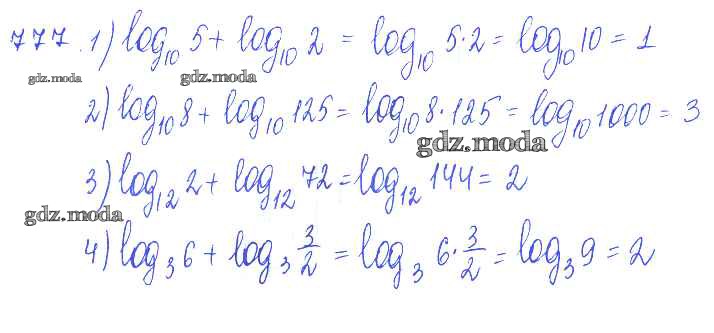 777. 1) log₁₀ 5 + log₁₀ 2 = log₁₀ 5·2 = log₁₀ 10 = 1
gdz.moda gdz.moda
2) log₁₀ 8 + log₁₀ 125 = log₁₀ 8·125 = log₁₀ 1000 = 3
gdz.moda
3) log₁₂ 2 + log₁₂ 72 = log₁₂ 144 = 2
gdz.moda
4) log₃ 6 + log₃ 3/2 = log₃ 6·3/2 = log₃ 9 = 2